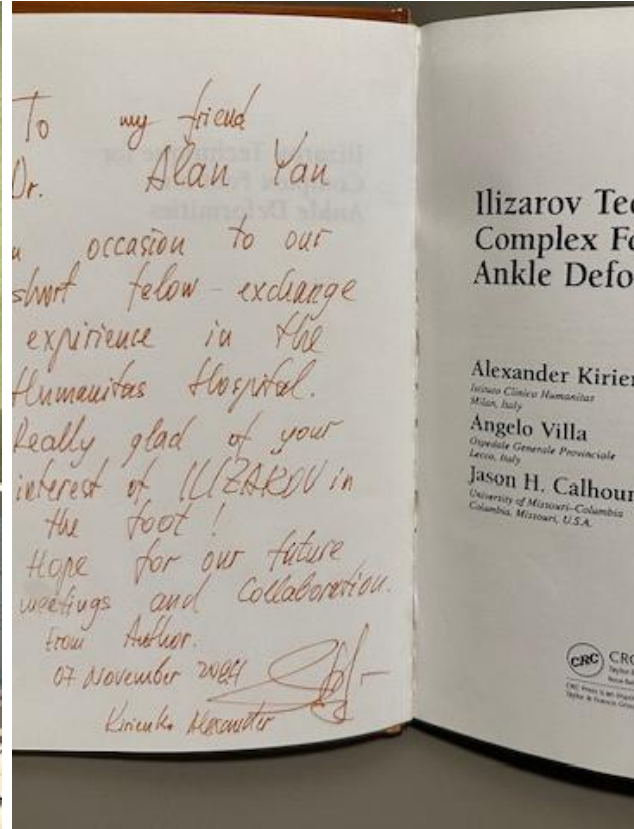 To my friend
Dr. Alan Yan
occasion to our
short felow-exchange
expirience in the
Humanitas Hospital.
Really glad of your
interest of ILIZAROV in
the foot!
Hope for our future
meetings and Collaboration.
From Author.
07 November
Kirienko Alexander
Ilizarov Tec
Complex Fo
Ankle Defo
Alexander Kirien
Istituto Clinico Humanitas
Milan, Italy
Angelo Villa
Ospedale Generale Provinciale
Lecco, Italy
Jason H. Calhoun
University of Missouri–Columbia
Columbia, Missouri, U.S.A.
CRC CRC